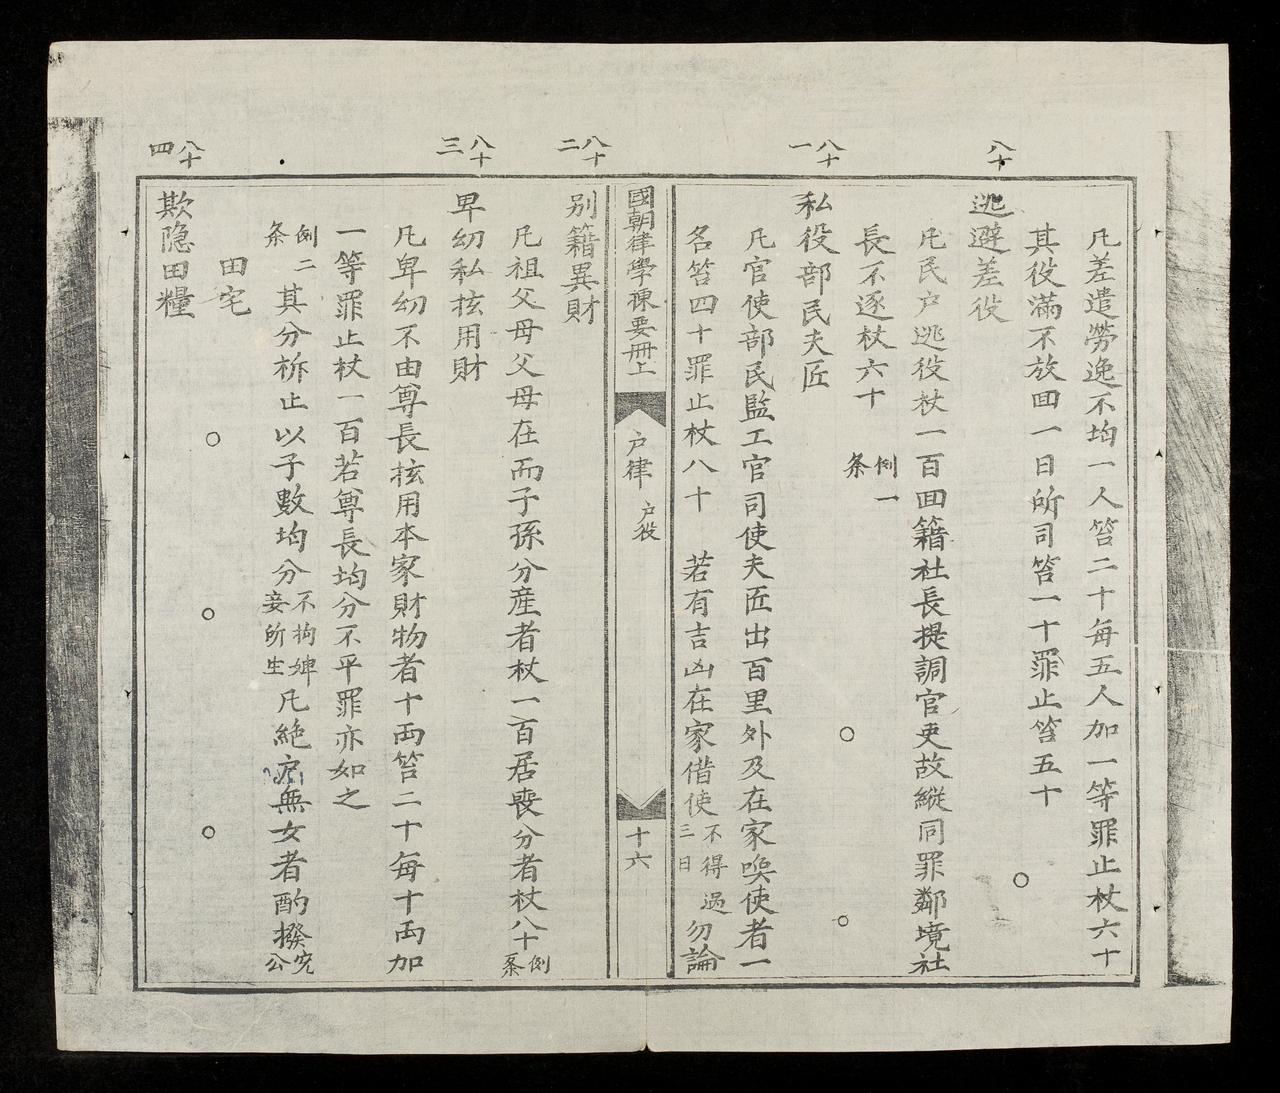 八十
八十一
凡差遣勞逸不均一人笞二十每五人加一等罪止杖六十
其役滿不放回一日所司笞一十罪止笞五十
逃避差役
凡民户逃役杖一百回籍社長提調官吏故縱同罪鄰境社
長不逐杖六十 例一条
私役部民夫匠
凡官使部民監工官司使夫匠出百里外及在家喚使者一
名笞四十罪止杖八十 若有吉凶在家借使不得過三日勿論
國朝律學揀要冊上
户律 户役
十六
八十二
八十三
八十四
別籍異財
凡祖父母父母在而子孫分産者杖一百居喪分者杖八十例条
卑幼私擅用財
凡卑幼不由尊長擅用本家財物者十両笞二十每十両加
一等罪止杖一百若尊長均分不平罪亦如之
例二条其分析止以子數均分不拘婢妾所生凡絶户無女者酌撥充公
田宅
欺隐田糧